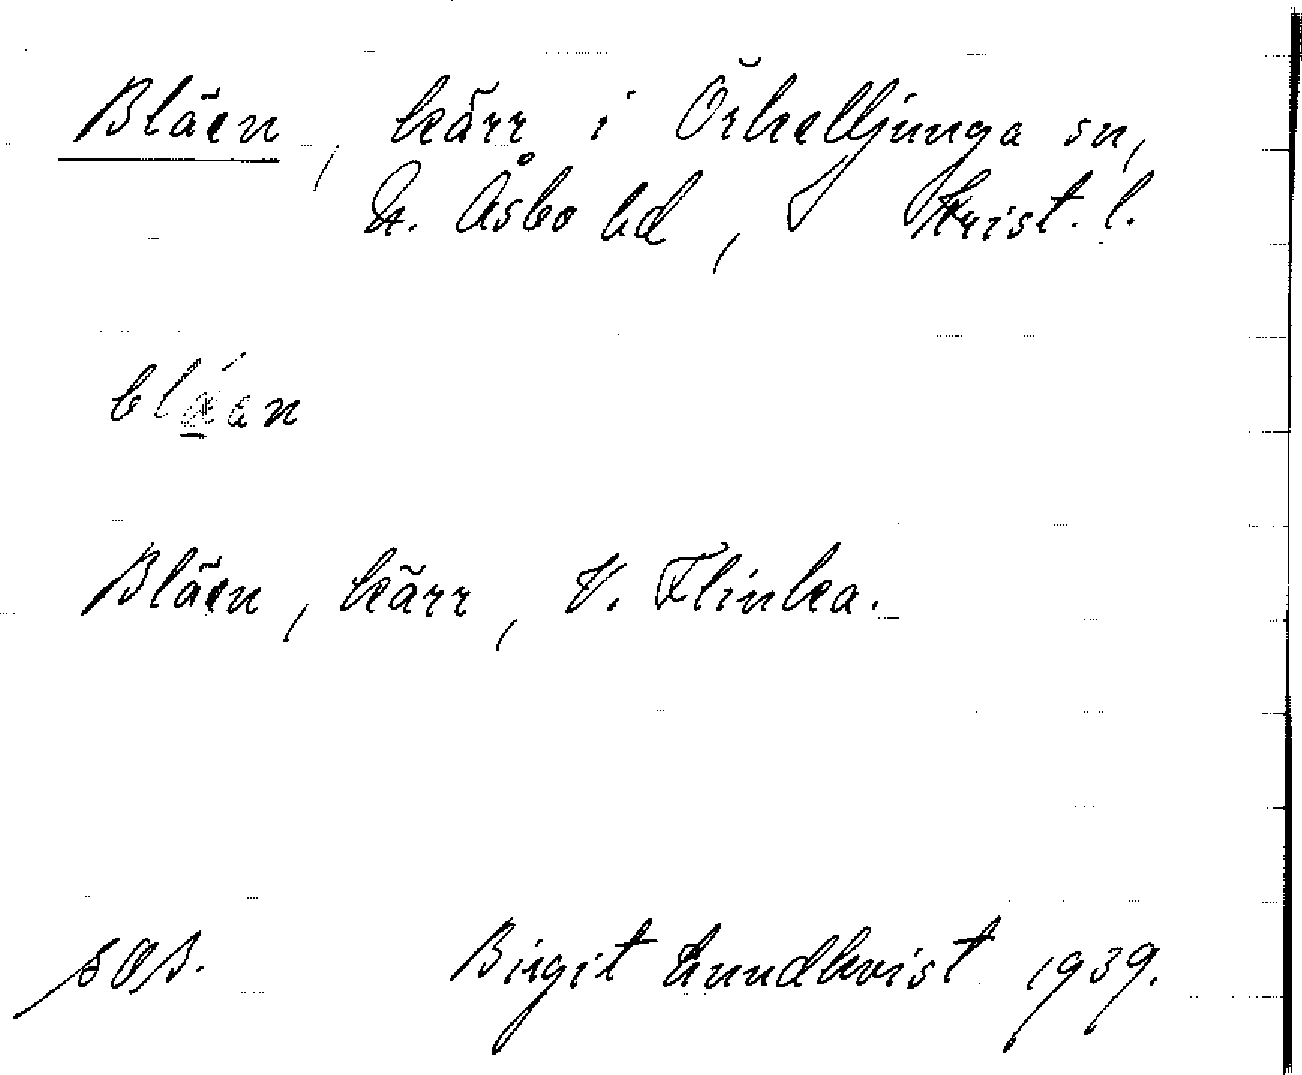 Bläen, kärr i Örkelljunga sn,
N. Åsbo hd, Krist. l.
Bläen, kärr, V. Flinka.
Birgit Lundkvist 1939.